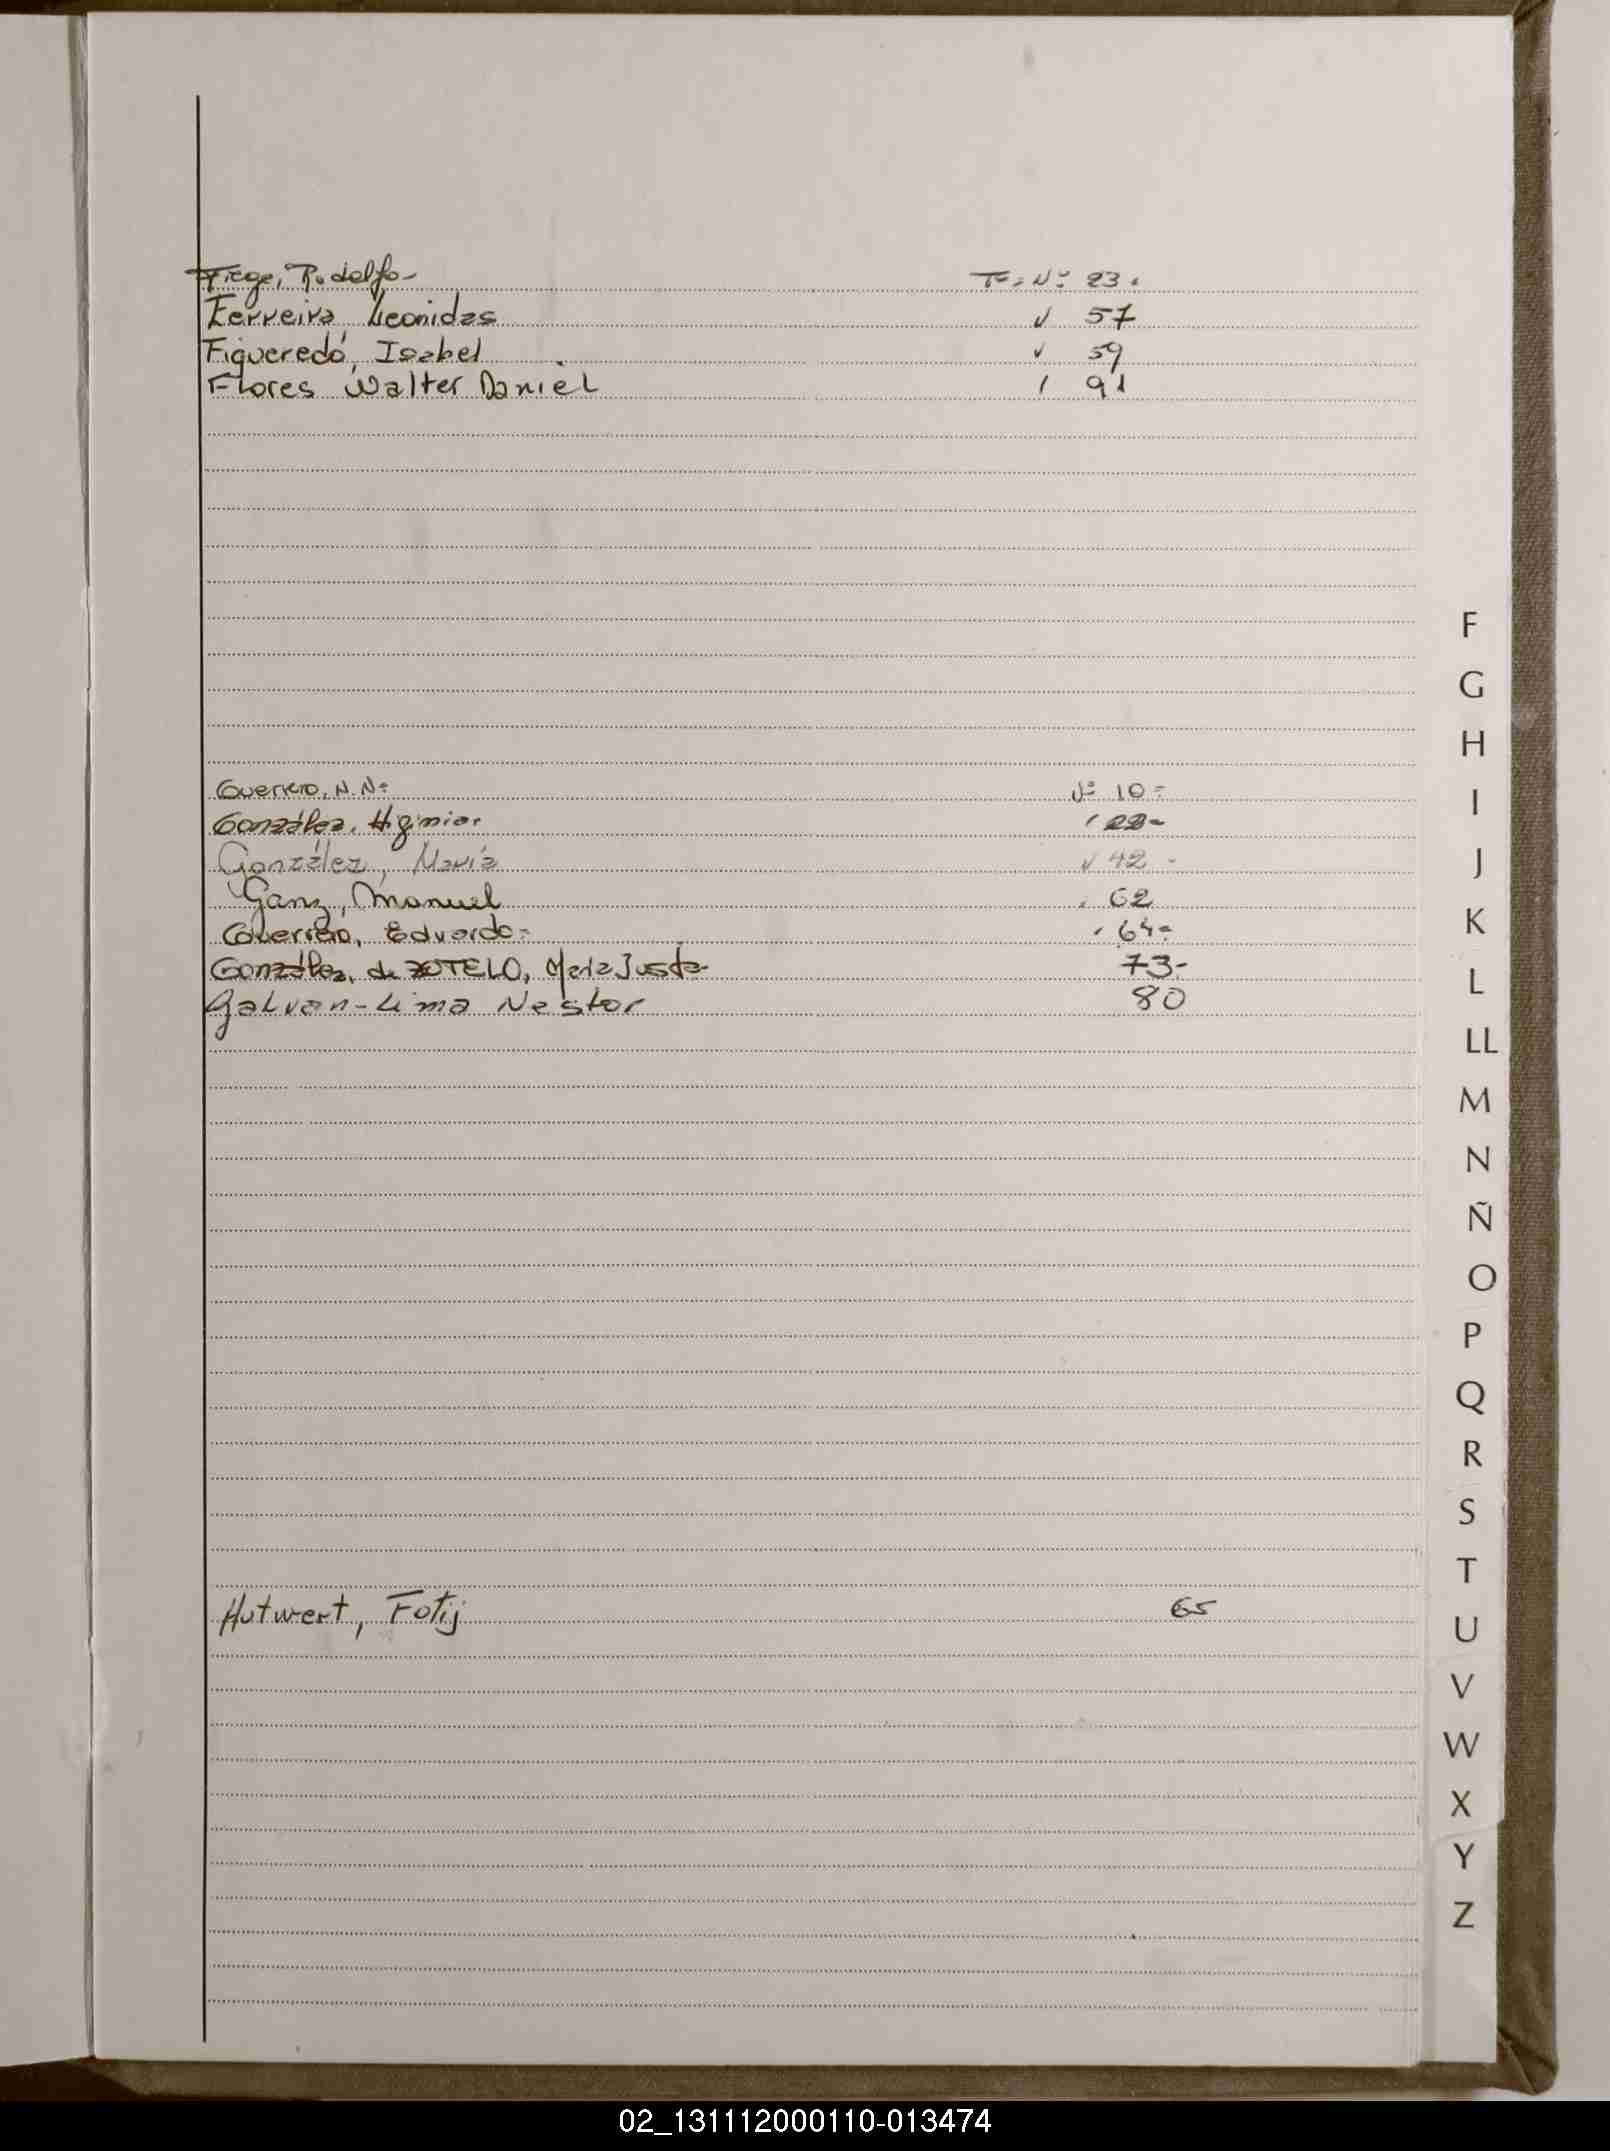 Fiege, Rodolfo- Fº. Nº 23.
Ferreira, Leonidas √ 57
Figueredo, Isabel √ 59
Flores Walter Daniel / 91
Guerrero, N.N= Nº 10=
González, Higinio. ' 22-
González, María √ 42 -
Ganz, Manuel . 62
Guerrero, Eduardo= ' 64=
González, de SOTELO, María Justa- 73-
Galvan-Lima Nestor 80
Hutwert, Fotij 65
F
G
H
I
J
K
L
LL
M
N
Ñ
O
P
Q
R
S
T
U
V
W
X
Y
Z
02_131112000110-013474